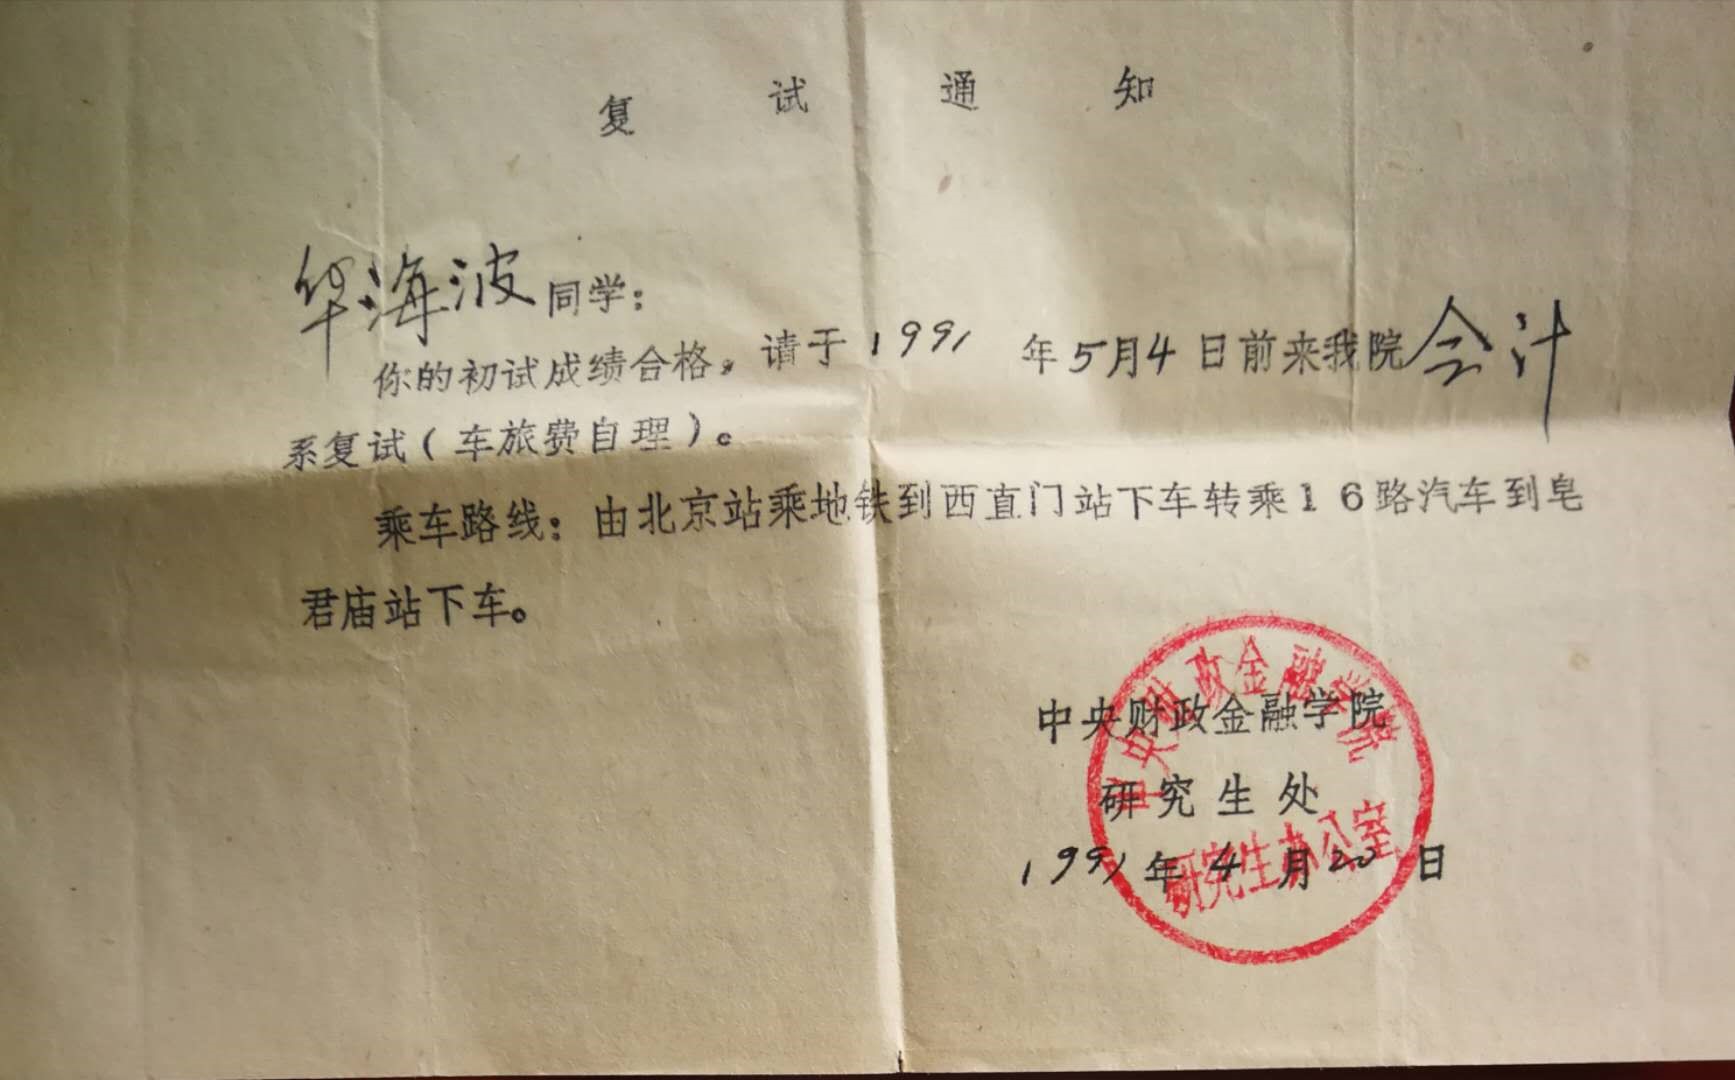 复试通知
华海波同学：
你的初试成绩合格，请于1991年5月4日前来我院会计
系复试（车旅费自理）。
乘车路线：由北京站乘地铁到西直门站下车转乘16路汽车到皂
君庙站下车。
中央财政金融学院
研究生处
1991年4月20日
中央财政金融学院
研究生办公室